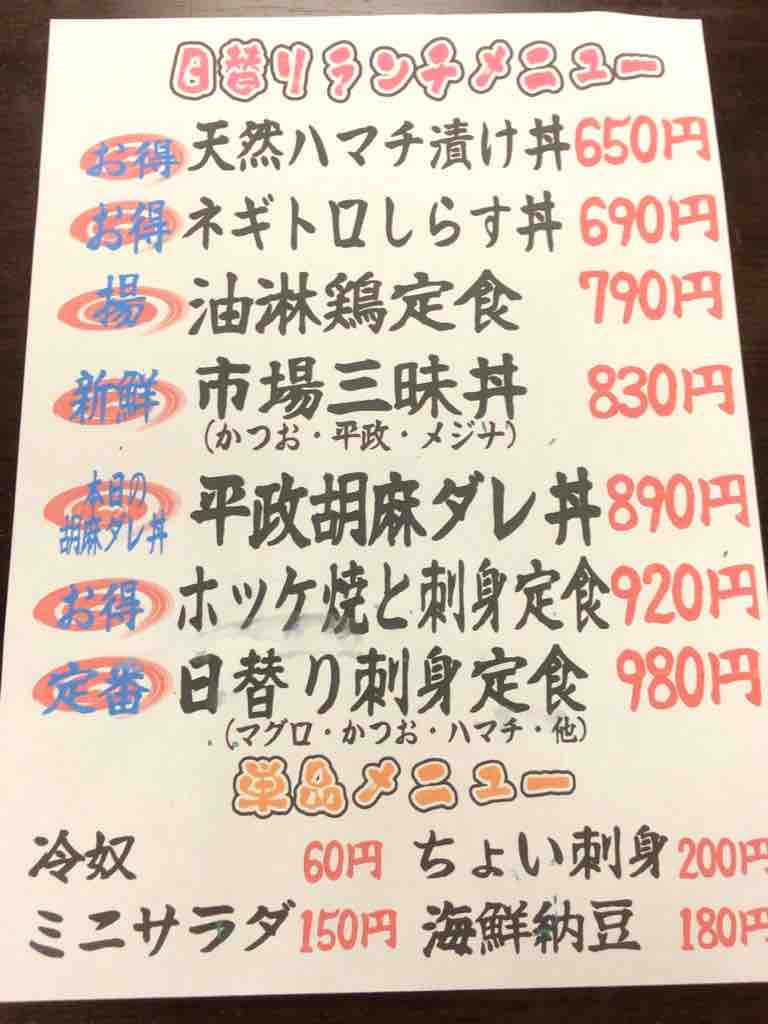 日替りランチメニュー
お得 天然ハマチ漬け丼 650円
お得 ネギトロしらす丼 690円
揚 油淋鶏定食 790円
新鮮 市場三昧丼 830円
(かつお・平政・メジナ)
本日の胡麻ダレ丼 平政胡麻ダレ丼 890円
お得 ホッケ焼と刺身定食 920円
定番 日替り刺身定食 980円
(マグロ・かつお・ハマチ・他)
単品メニュー
冷奴 60円 ちょい刺身 200円
ミニサラダ 150円 海鮮納豆 180円